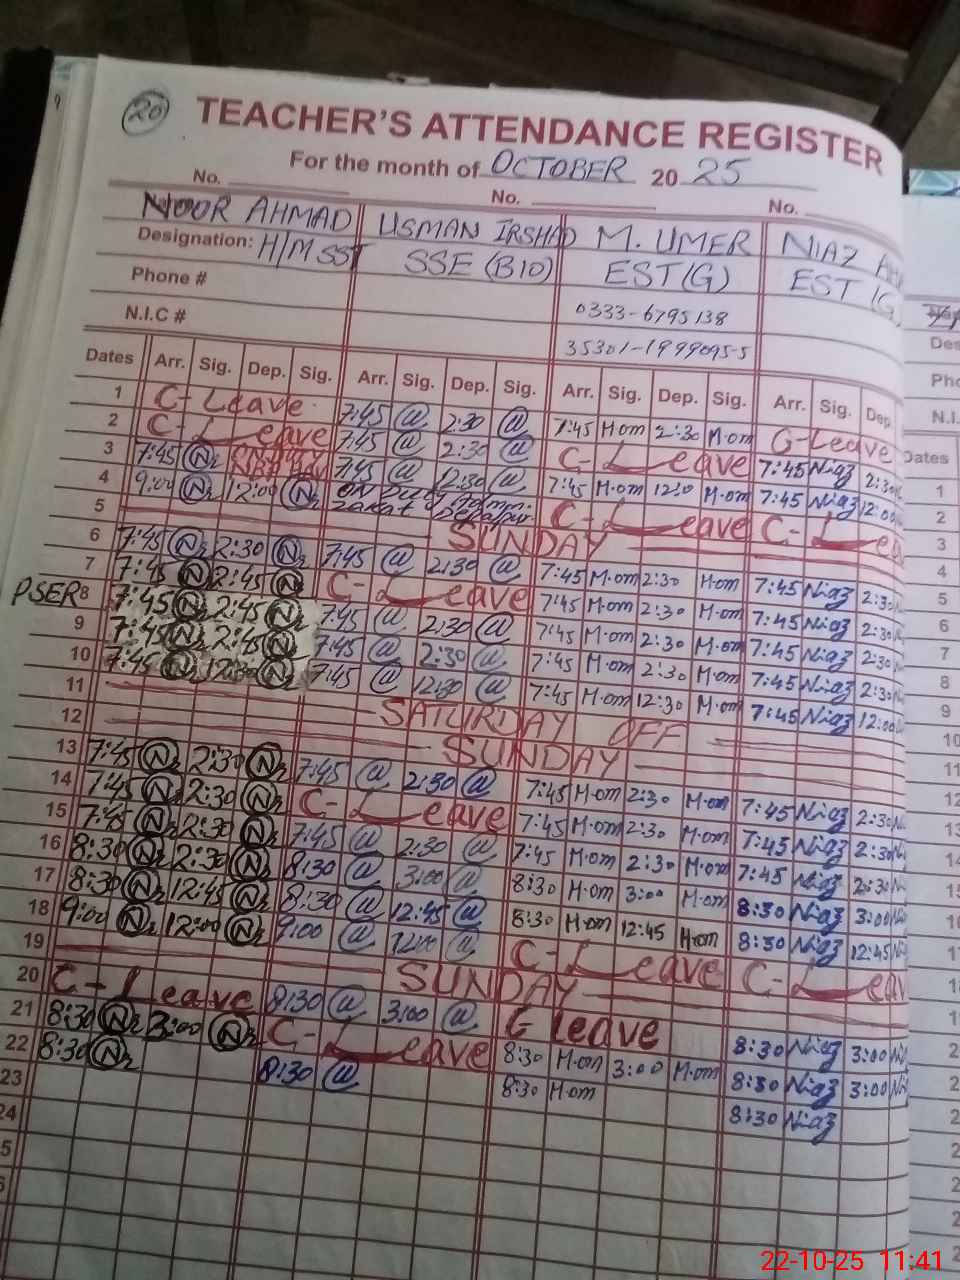 20
TEACHER'S ATTENDANCE REGISTER
For the month of OCTOBER 20 25
No. No. No.
NOOR AHMAD USMAN IRSHAD M. UMER NIAZ
Designation: H/M SST SSE (BIO) EST (G) EST (G
Phone # 0333-6795138
N.I.C # 35301-1999095-5
Dates Arr. Sig. Dep. Sig. Arr. Sig. Dep. Sig. Arr. Sig. Dep. Sig. Arr. Sig. Dep.
1 C-Leave 7:45 @ 2:30 @ 7:45 M.om 2:30 M.om C-Leave
2 C-Leave 7:45 @ 2:30 @ C-Leave 7:45 Niaz 2:30
3 7:45 Nr 7:45 @ 12:30 @ 7:45 M.om 12:0 M.om 7:45 Niaz 12:00
4 9:00 Nr 12:00 Nr ON Duty Zakat C-Leave C-Lea
5 SUNDAY
6 7:45 Nr 2:30 Nr 7:45 @ 2:30 @ 7:45 M.om 2:30 M.om 7:45 Niaz 2:30
7 7:45 Nr 2:45 Nr C-Leave 7:45 M.om 2:30 M.om 7:45 Niaz 2:30
PSER 8 7:45 Nr 2:45 Nr 7:45 @ 2:30 @ 7:45 M.om 2:30 M.om 7:45 Niaz 2:30
9 7:45 Nr 2:45 Nr 7:45 @ 2:30 @ 7:45 M.om 2:30 M.om 7:45 Niaz 2:30
10 7:45 Nr 12:30 Nr 7:45 @ 12:30 @ 7:45 M.om 12:30 M.om 7:45 Niaz 12:00
11 SATURDAY OFF
12 SUNDAY
13 7:45 Nr 2:30 Nr 7:45 @ 2:30 @ 7:45 M.om 2:30 M.om 7:45 Niaz 2:30
14 7:45 Nr 2:30 Nr C-Leave 7:45 M.om 2:30 M.om 7:45 Niaz 2:30
15 7:45 Nr 2:30 Nr 7:45 @ 2:30 @ 7:45 M.om 2:30 M.om 7:45 Niaz 2:30
16 8:30 Nr 2:30 Nr 8:30 @ 3:00 @ 8:30 M.om 3:00 M.om 8:30 Niaz 3:00
17 8:30 Nr 12:45 Nr 8:30 @ 12:45 @ 8:30 M.om 12:45 M.om 8:30 Niaz 12:45
18 9:00 Nr 12:00 Nr 9:00 @ 12:00 @ C-Leave C-Leav
19 SUNDAY
20 C-Leave 8:30 @ 3:00 @ C Leave 8:30 Niaz 3:00
21 8:30 Nr 3:00 Nr C-Leave 8:30 M.om 3:00 M.om 8:30 Niaz 3:00
22 8:30 Nr 8:30 @ 8:30 M.om 8:30 Niaz
23
24
Des
Pho
N.I.
Dates
1
2
3
4
5
6
7
8
9
10
11
12
22-10-25 11:41